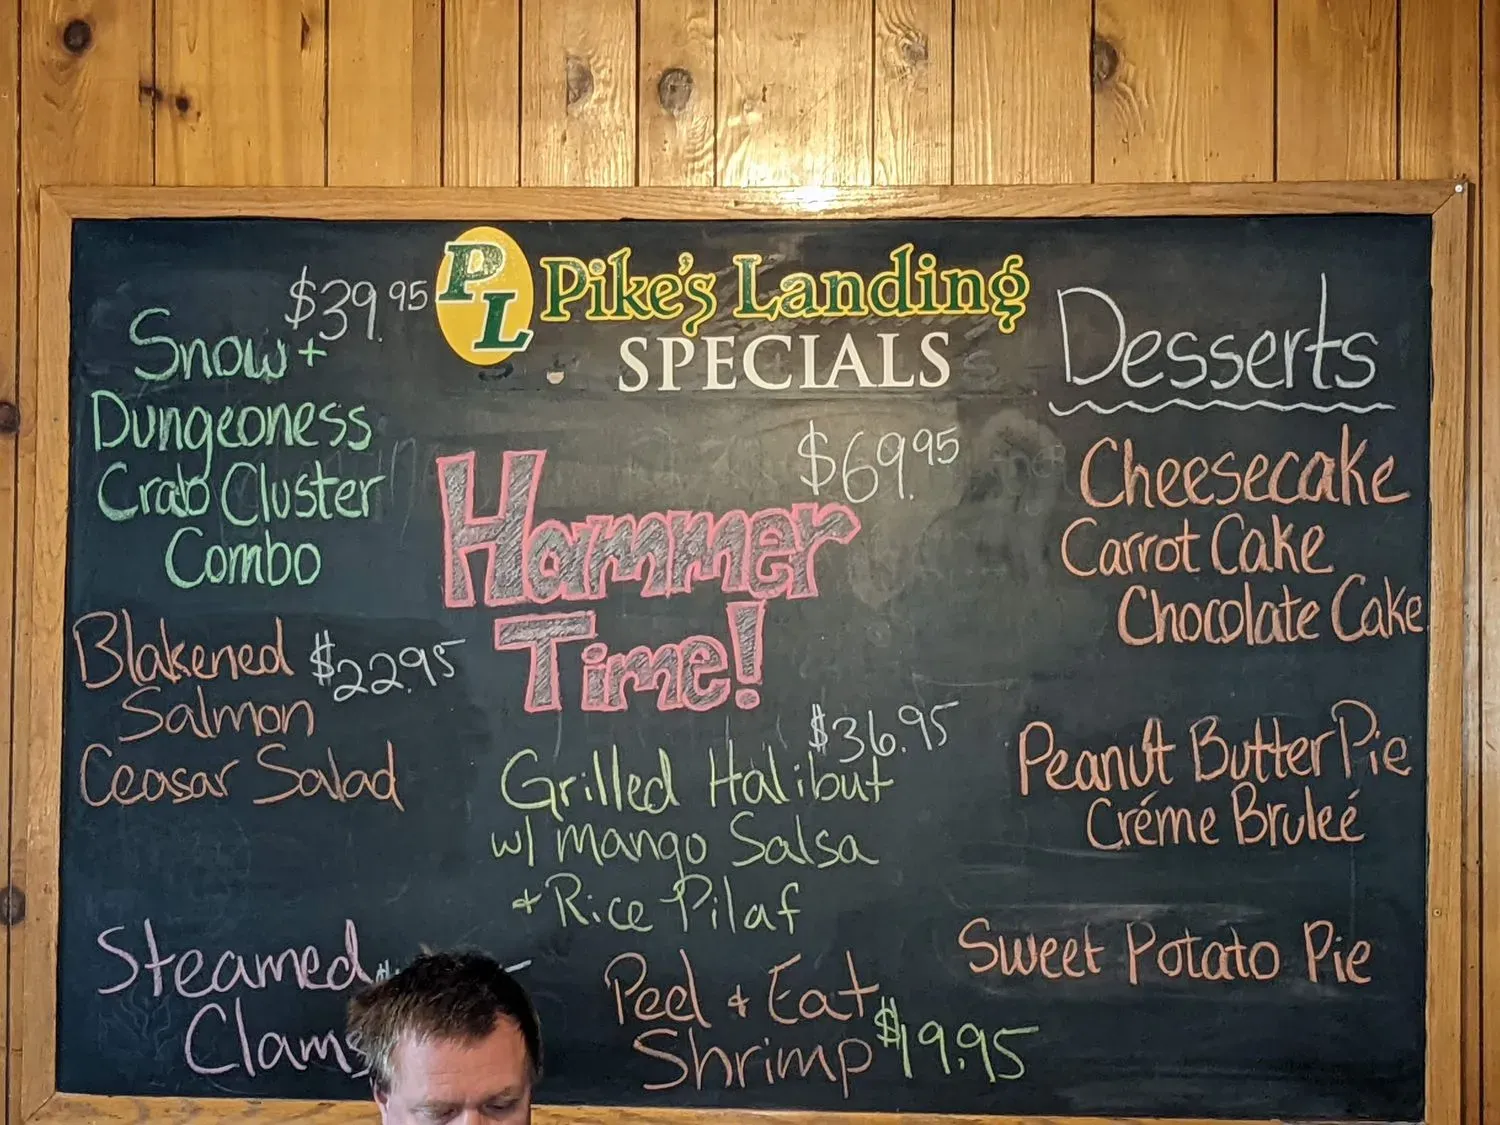 PL Pike's Landing
SPECIALS
$39.95
Snow +
Dungeoness
Crab Cluster
Combo
Blakened $22.95
Salmon
Ceasar Salad
Steamed
Clams
$69.95
Hammer
Time!
$36.95
Grilled Halibut
w/ mango Salsa
+ Rice Pilaf
Peel + Eat
Shrimp $19.95
Desserts
Cheesecake
Carrot Cake
Chocolate Cake
Peanut Butter Pie
Créme Bruleé
Sweet Potato Pie